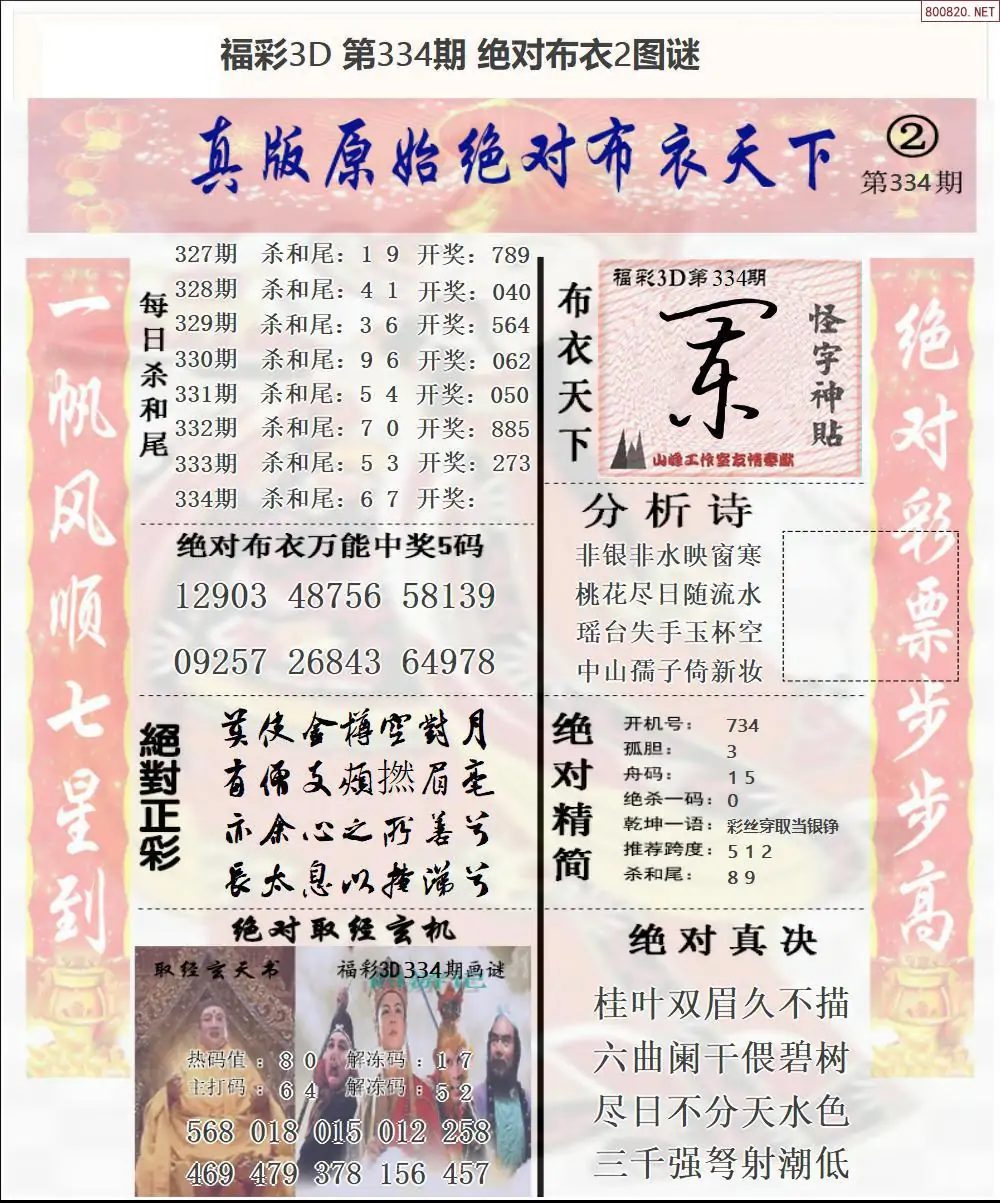 800820.NET
福彩3D 第334期 绝对布衣2图谜
真版原始绝对布衣天下
②
第334期
一帆风顺七星到
每日杀和尾
327期 杀和尾：1 9 开奖：789
328期 杀和尾：4 1 开奖：040
329期 杀和尾：3 6 开奖：564
330期 杀和尾：9 6 开奖：062
331期 杀和尾：5 4 开奖：050
332期 杀和尾：7 0 开奖：885
333期 杀和尾：5 3 开奖：273
334期 杀和尾：6 7 开奖：
绝对布衣万能中奖5码
12903 48756 58139
09257 26843 64978
絕對正彩
莫使金樽空對月
有僧支頰撚眉毫
亦余心之所善兮
長太息以掩涕兮
绝对取经玄机
取经玄天书
福彩3D334期画谜
热码值：8 0 解冻码：1 7
主打码：6 4 解冻码：5 2
568 018 015 012 258
469 479 378 156 457
布衣天下
福彩3D第334期
怪字神貼
山峰工作室友情奉献
分析诗
非银非水映窗寒
桃花尽日随流水
瑶台失手玉杯空
中山孺子倚新妆
绝对精简
开机号： 734
孤胆： 3
舟码： 1 5
绝杀一码：0
乾坤一语：彩丝穿取当银铮
推荐跨度：5 1 2
杀和尾： 8 9
绝对真决
桂叶双眉久不描
六曲阑干偎碧树
尽日不分天水色
三千强弩射潮低
绝对彩票步步高